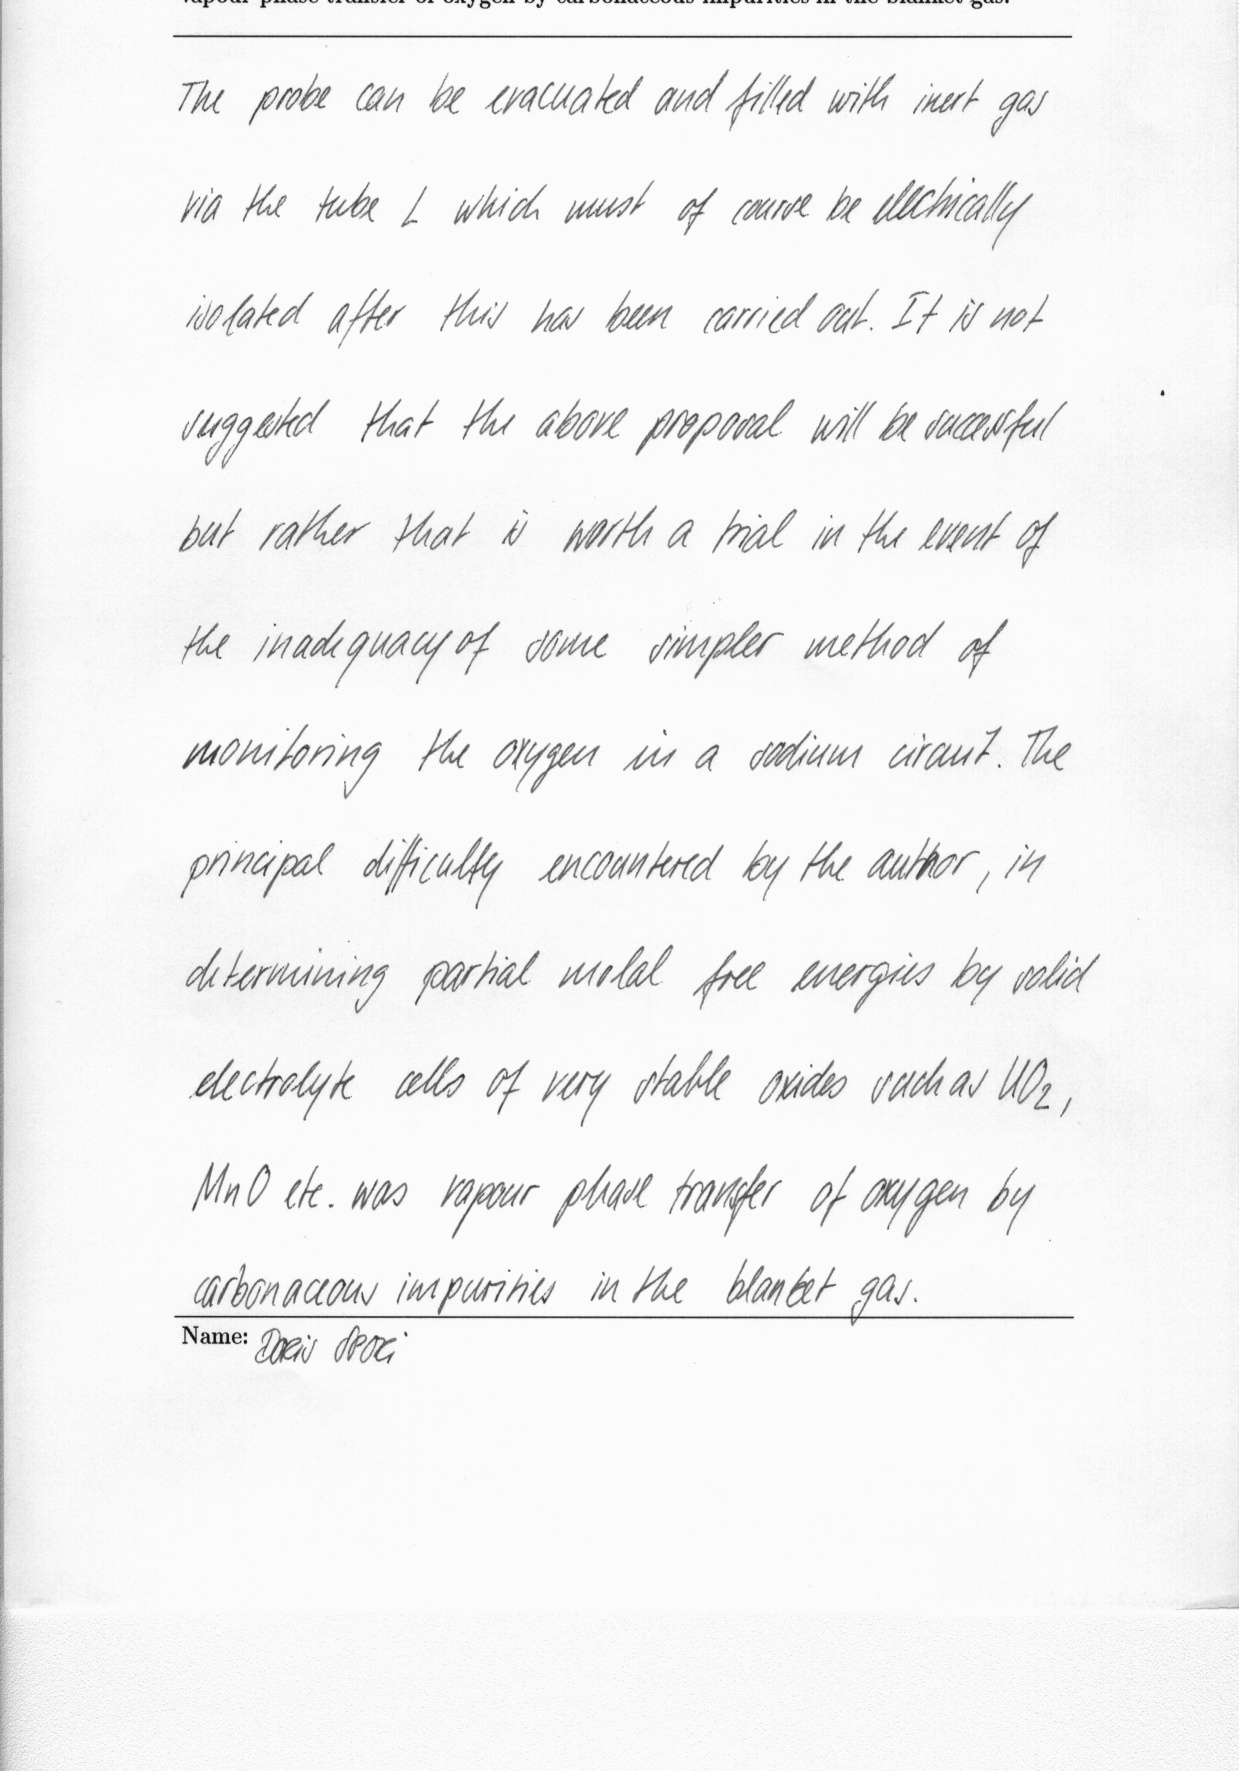 vapour phase transfer of oxygen by carbonaceous impurities in the blanket gas.
The probe can be evacuated and filled with inert gas
via the tube L which must of course be electrically
isolated after this has been carried out. It is not
suggested that the above proposal will be successful
but rather that is worth a trial in the event of
the inadequacy of some simpler method of
monitoring the oxygen in a sodium circuit. The
principal difficulty encountered by the author, in
determining partial molal free energies by solid
electrolyte cells of very stable oxides such as UO2,
MnO etc. was vapour phase transfer of oxygen by
carbonaceous impurities in the blanket gas.
Name: Doris